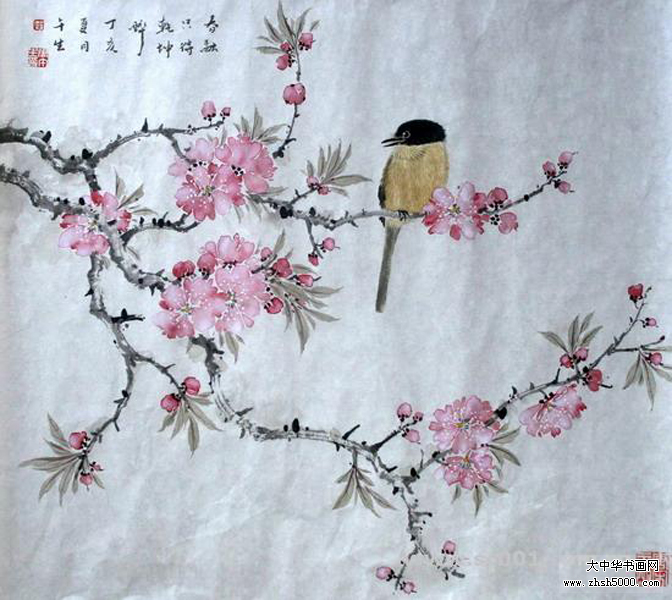 春融
只待
乾坤
醉
丁亥
夏月
午生
大中华书画网
www.zhsh5000.com